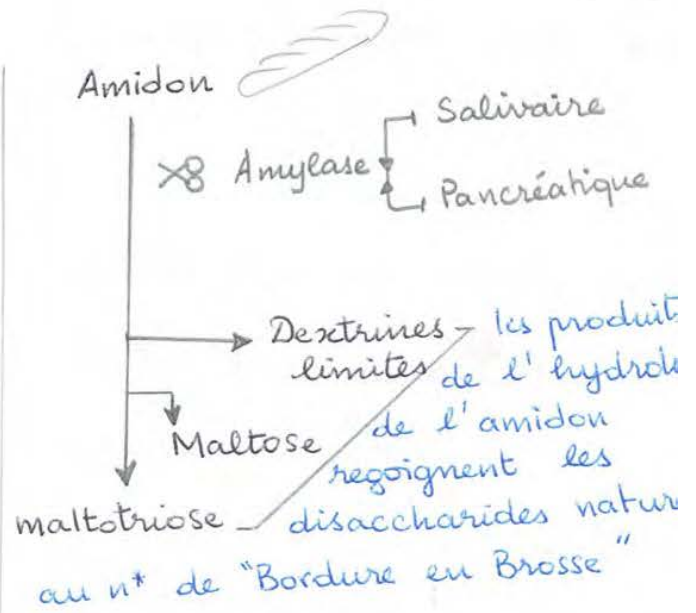 Amidon
Amylase
Salivaire
Pancréatique
Dextrines
limites
Maltose
maltotriose
les produit
de l'
de l'amidon
regoignent les
disaccharides
au n* de "Bordure en Brosse"